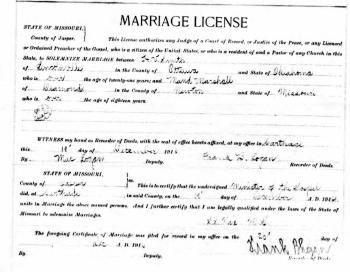 MARRIAGE LICENSE
STATE OF MISSOURI,
County of Jasper.
This License authorizes any Judge of a Court of Record, or Justice of the Peace, or any Licensed
or Ordained Preacher of the Gospel, who is a citizen of the United States, or who is a resident of and a Pastor of any Church in this
State, to SOLEMNIZE MARRIAGE between Smith
of in the County of Ottawa and State of Oklahoma
who is over the age of twenty-one years; and Maud Marshall
of Diamond in the County of Newton and State of Missouri
who is over the age of eighteen years.
WITNESS my hand as Recorder of Deeds, with the seal of office hereto affixed, at my office in Carthage
this 18 day of December 1914
By Mae Logan Deputy. Frank Logan Recorder of Deeds.
STATE OF MISSOURI,
County of Jasper
This is to certify that the undersigned Minister of the Gospel
did, at Carthage in said County, on the day of A. D. 1914
unite in Marriage the above named persons. And I further certify that I am legally qualified under the laws of the State of
Missouri to solemnize Marriages.
The foregoing Certificate of Marriage was filed for record in my office on the day of
A. D. 1914
By Deputy. Frank Logan